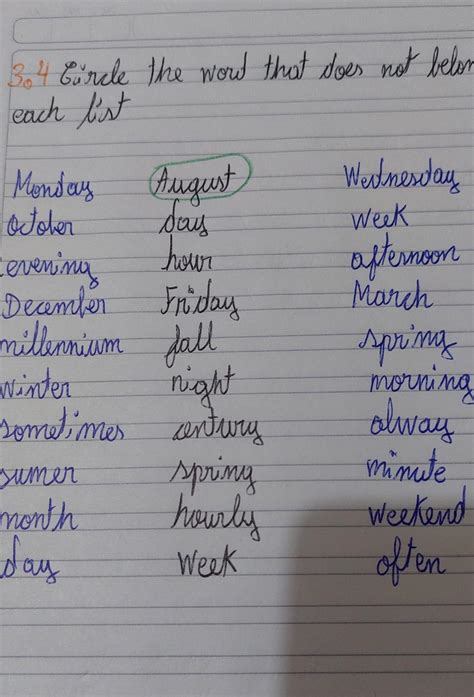 3.4 Circle the word that does not belon
each list
Monday August Wednesday
October day week
evening hour afternoon
December Friday March
millennium fall spring
winter night morning
sometimes century alway
sumer spring minute
month hourly weekend
day week often